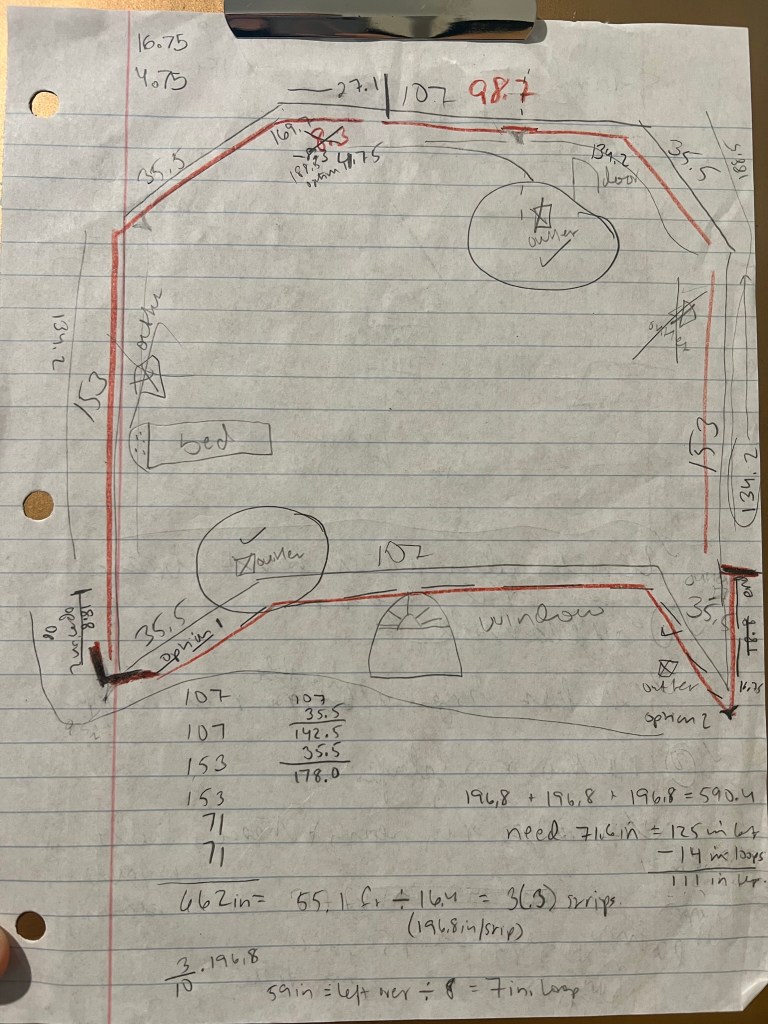 16.75
4.75
27.1 107 98.7
169.7
8.3
41.75
option
35.5
134.2
35.5
188.5
door
outlet
134.2
153
outlet
bed
153
134.2
outlet
107
window
35.5
option 1
18.8
35.5
18.8
16.75
outlet
option 2
107 107
35.5
107 142.5
35.5
153 178.0
153
71
71
196.8 + 196.8 + 196.8 = 590.4
need 71.6in = 125 in left
- 14 in loops
111 in left
662in = 55.1 ft ÷ 16.4 = 3(.3) strips
(196.8in/strip)
3/10 . 196.8
59in = left over ÷ 8 = 7 in. loop